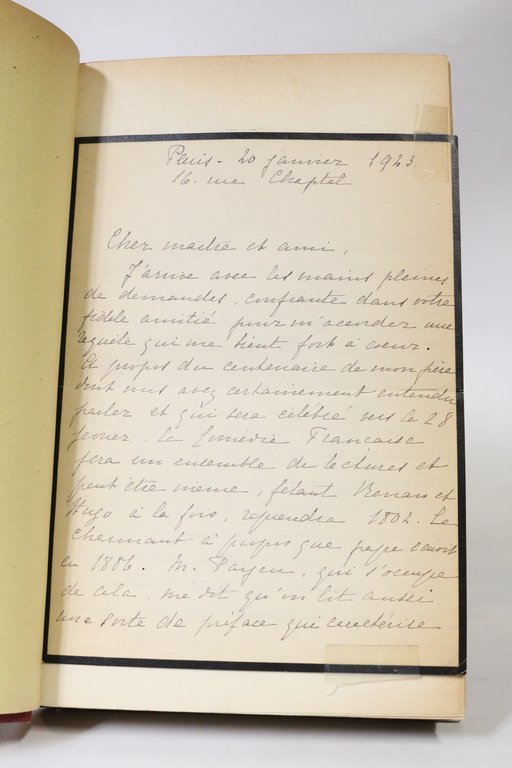 Paris - 20 janvier 1923.
16. rue Chaptal
Cher maître et ami,
J'arrive avec les mains pleines
de demandes, confiante dans votre
fidèle amitié pour m'accorder une
requête qui me tient fort à coeur.
A propos du centenaire de mon père
dont vous avez certainement entendu
parler et qui sera célébré vers le 28
février. La Comédie Française
fera un ensemble de lectures et
peut être même, fêtant Renan et
Hugo à la fois, reprendra 1802. Le
charmant à propos que papa écrivit
en 1886. M. Payen, qui s'occupe
de cela, me dit qu'on lit aussi
une sorte de préface qui caractérise